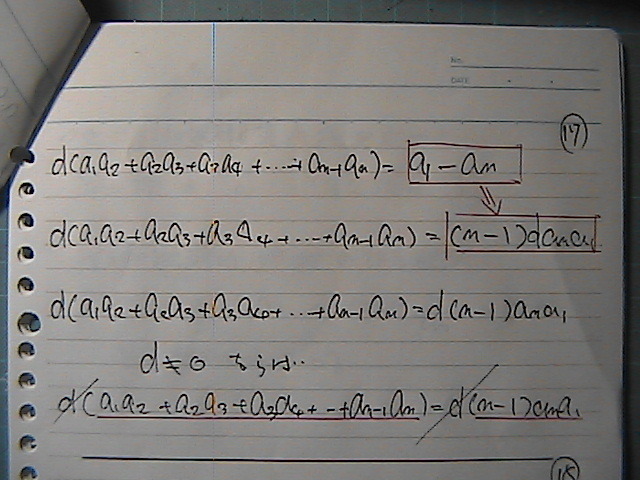 No.
DATE
⑰
d(a₁a₂+a₂a₃+a₃a₄+....+aₙ₋₁aₙ)=a₁-aₙ
⇓
d(a₁a₂+a₂a₃+a₃a₄+...+aₙ₋₁aₙ)=(n-1)daₙa₁
d(a₁a₂+a₂a₃+a₃a₄+...+aₙ₋₁aₙ)=d(n-1)aₙa₁
d≠0 ならば..
d(a₁a₂+a₂a₃+a₃a₄+--+aₙ₋₁aₙ)=d(n-1)aₙa₁
⑱